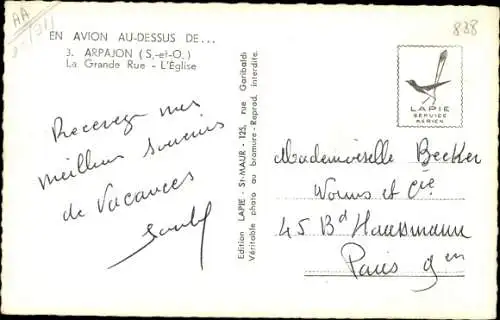 AA
838
EN AVION AU-DESSUS DE...
3. ARPAJON (S.-et-O.)
La Grande Rue - L'Église
Recevez mes
meilleurs souvenirs
de vacances
Edition LAPIE - St-MAUR - 125, rue Garibaldi
Véritable photo au bromure - Reprod. interdite.
LAPIE
SERVICE
AÉRIEN
Mademoiselle Becker
Worms et Cie
45 Bd Haussmann
Paris 9em